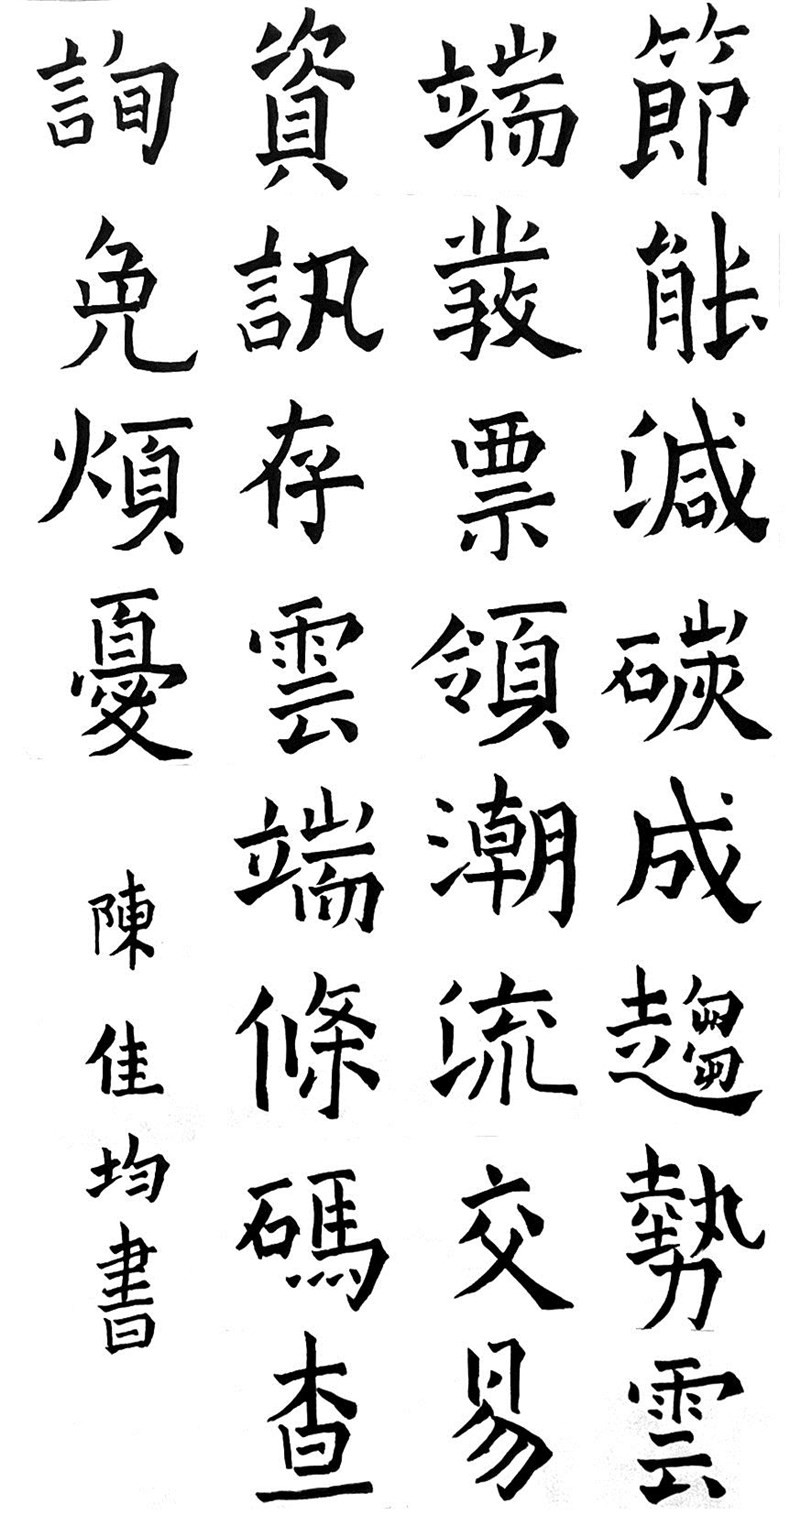 節能減碳成趨勢雲
端發票領潮流交易
資訊存雲端條碼查
詢免煩憂 陳佳均書